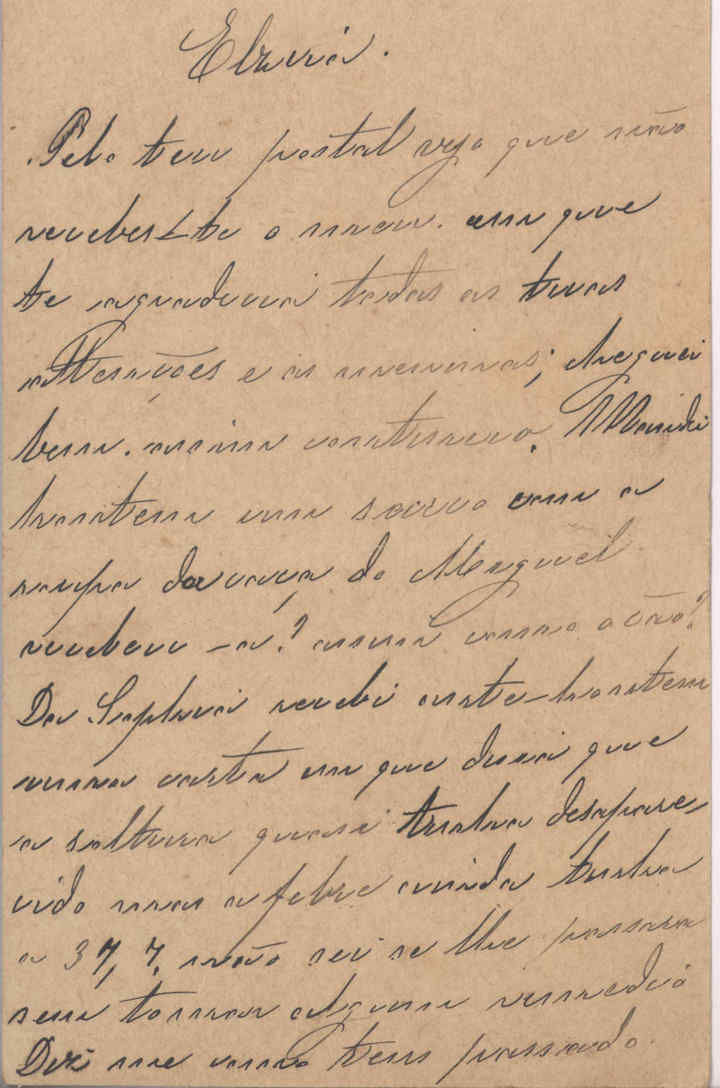 Elzira.
Pelo teu postal vejo que não
recebes-te o meu. em que
te agradecia todas as tuas
attenções e as meninas; cheguei
bem. assim continuo. Mandei
hontem um sacco com a
roupa da caça do Miguel
recebeu-a? assim como o cão?
Da Sophia recebi ante-hontem
uma carta em que dizia que
a soltura quasi tinha desapare-
cido mas a febre ainda tinha
a 37,7. não sei se lhe passara
sem tomar algum remedio
Diz me como tens passado.